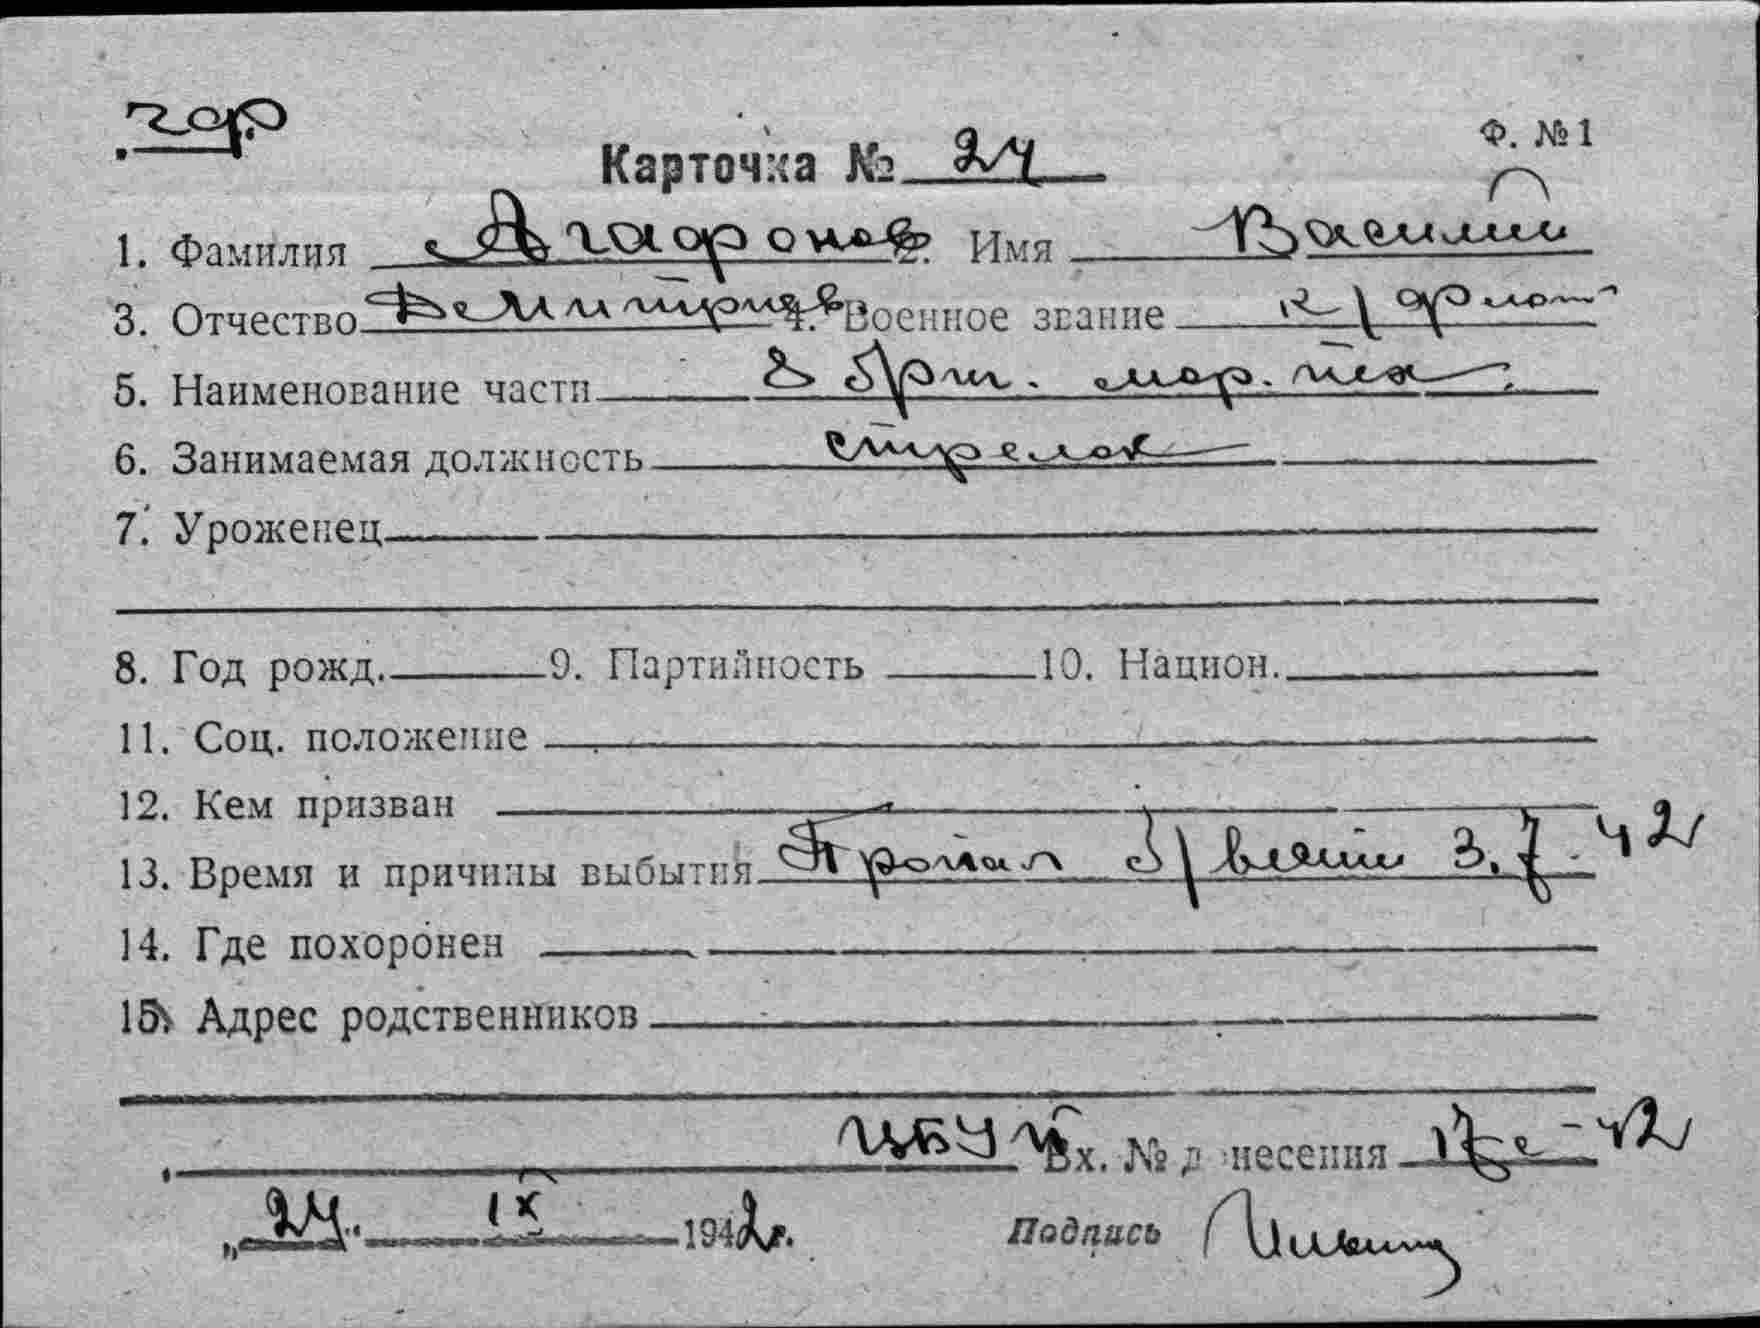 Ф. №1
Карточка № 24
1. Фамилия Агафонов 2. Имя Василий
3. Отчество Демитриев 4. Военное звание к/флот
5. Наименование части 8 бриг. мор. пех.
6. Занимаемая должность стрелок
7. Уроженец
8. Год рожд. 9. Партийность 10. Национ.
11. Соц. положение
12. Кем призван
13. Время и причины выбытия Пропал б/вести 3.7.42
14. Где похоронен
15. Адрес родственников
Вх. № д несения
„24“ IX 1942г. Подпись